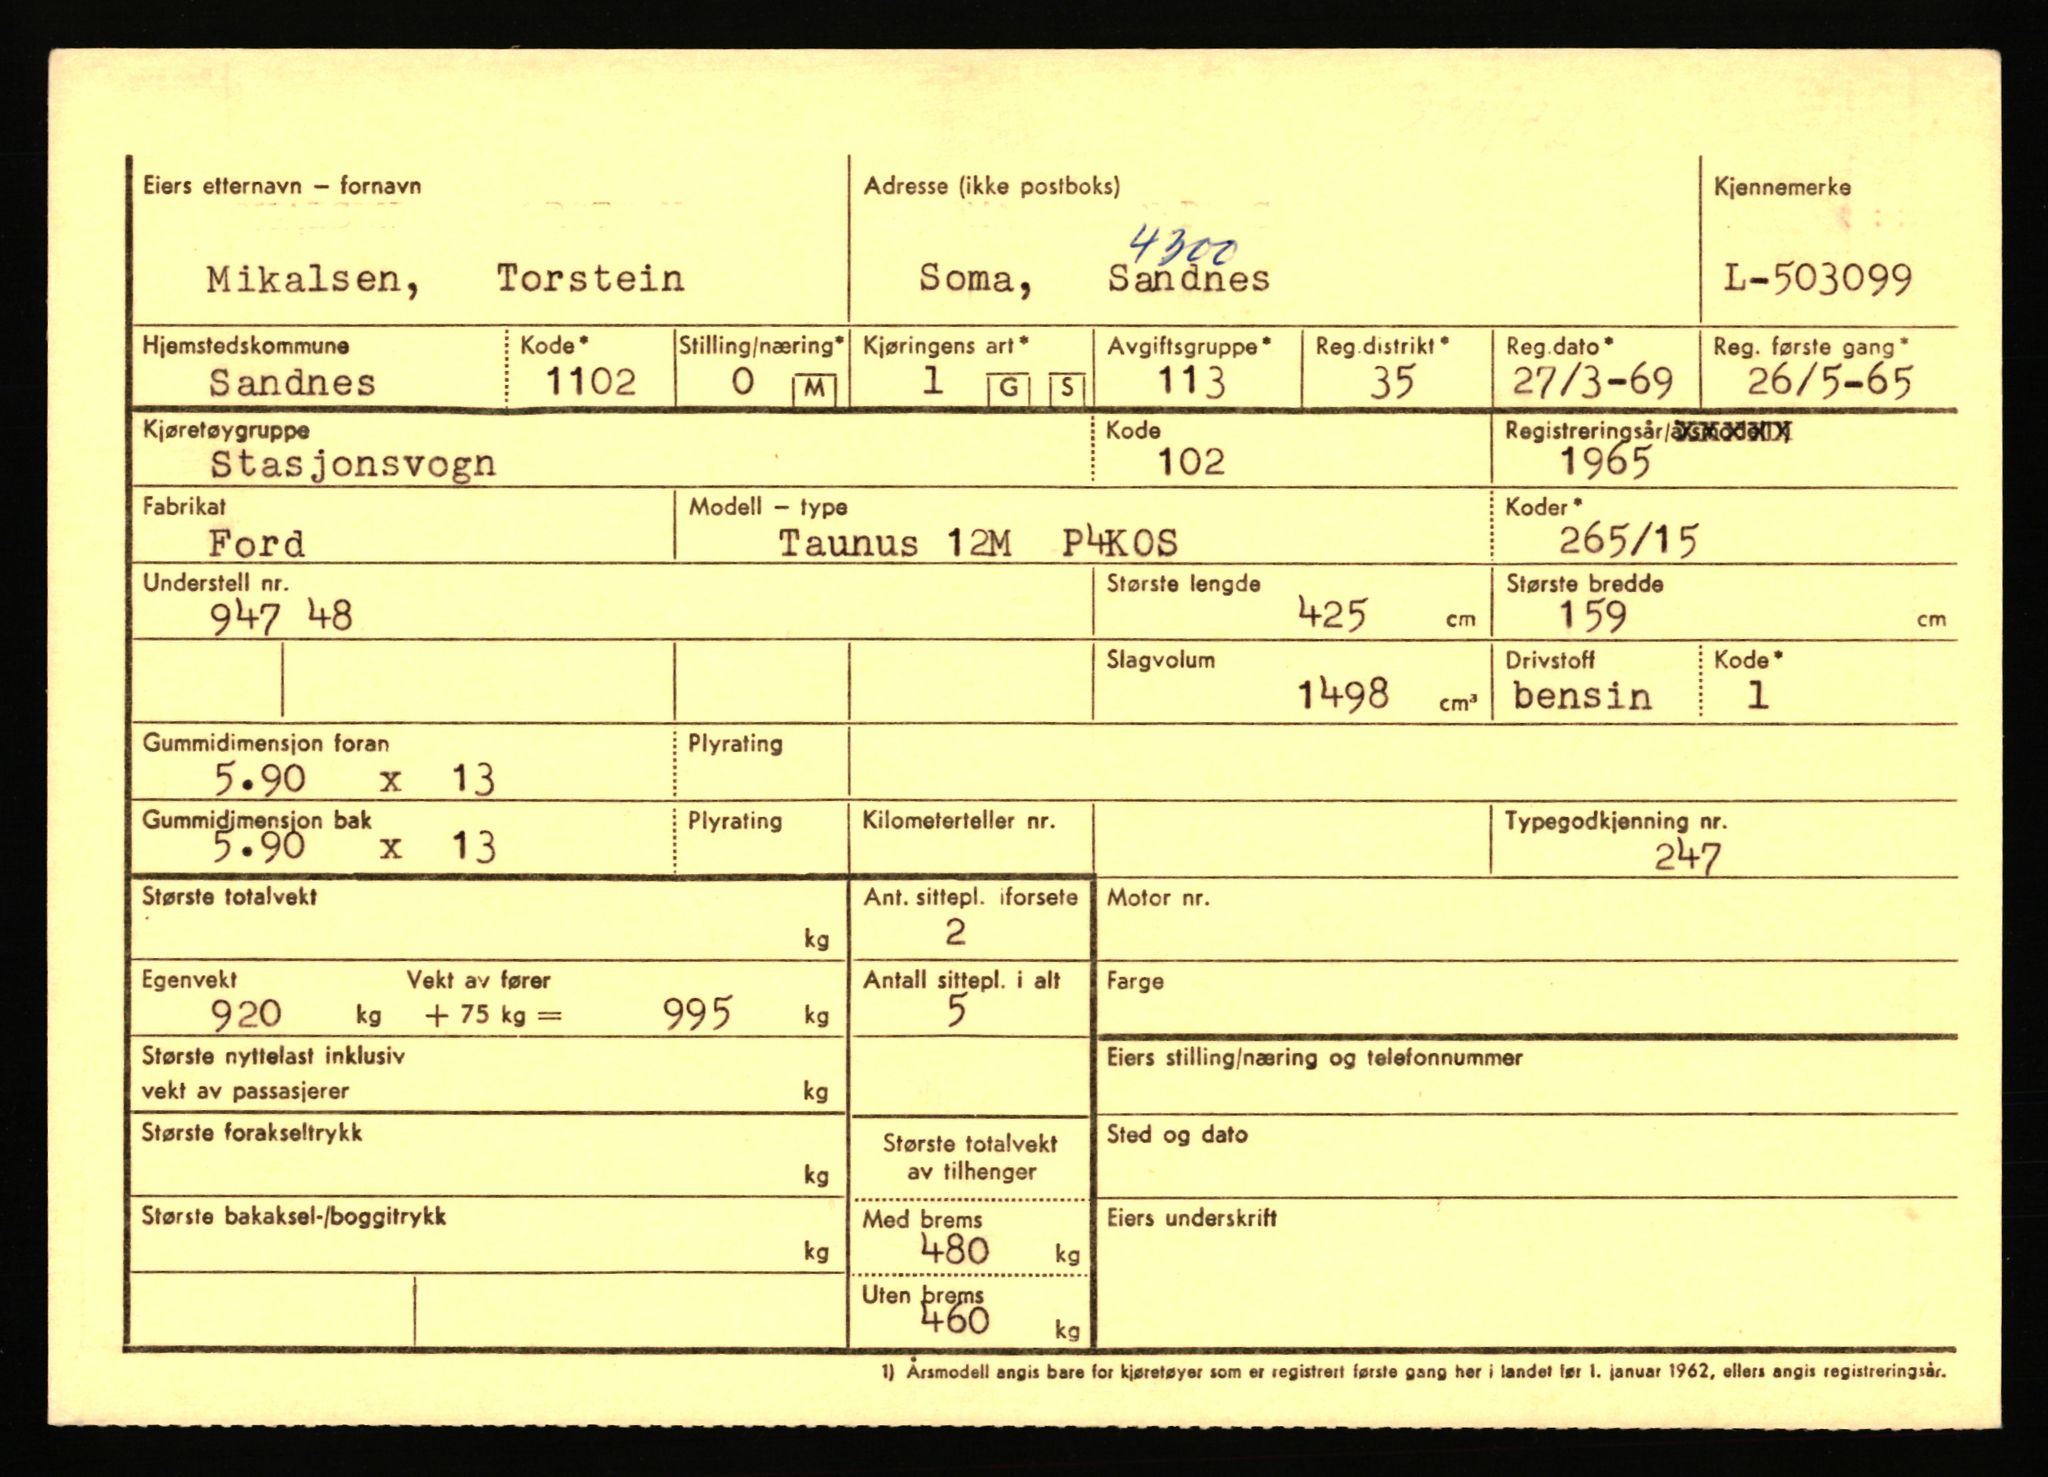 Eiers etternavn – fornavn Adresse (ikke postboks) Kjennemerke
4300
Mikalsen, Torstein Soma, Sandnes L-503099
Hjemstedskommune Kode* Stilling/næring* Kjøringens art* Avgiftsgruppe* Reg.distrikt* Reg.dato* Reg. første gang*
Sandnes 1102 0 M 1 G S 113 35 27/3-69 26/5-65
Kjøretøygruppe Kode Registreringsår/årsmodell
Stasjonsvogn 102 1965
Fabrikat Modell – type Koder*
Ford Taunus 12M P4KOS 265/15
Understell nr. Største lengde Største bredde
947 48 425 cm 159 cm
Slagvolum Drivstoff Kode*
1498 cm³ bensin 1
Gummidimensjon foran Plyrating
5.90 x 13
Gummidimensjon bak Plyrating Kilometerteller nr. Typegodkjenning nr.
5.90 x 13 247
Største totalvekt Ant. sittepl. iforsete Motor nr.
kg 2
Egenvekt Vekt av fører Antall sittepl. i alt Farge
920 kg + 75 kg = 995 kg 5
Største nyttelast inklusiv Eiers stilling/næring og telefonnummer
vekt av passasjerer kg
Største forakseltrykk Største totalvekt Sted og dato
kg av tilhenger
Største bakaksel-/boggitrykk Med brems Eiers underskrift
kg 480 kg
Uten brems
460 kg
1) Årsmodell angis bare for kjøretøyer som er registrert første gang her i landet før 1. januar 1962, ellers angis registreringsår.